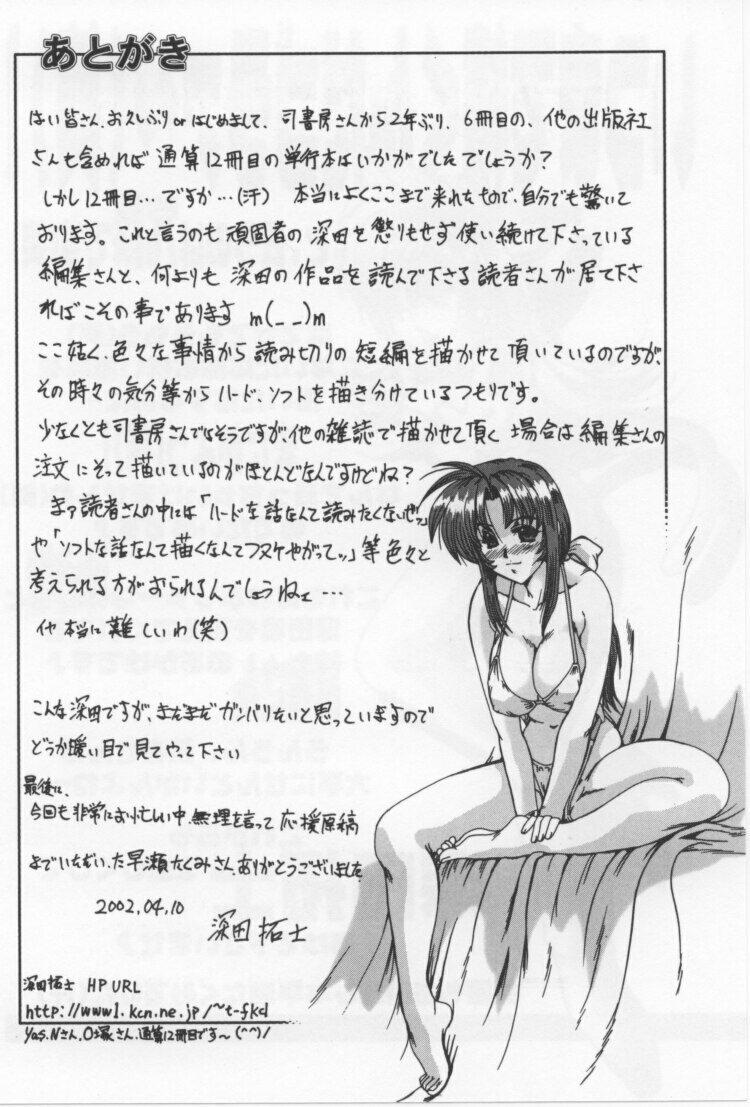 あとがき
はい皆さん、お久しぶり or はじめまして、司書房さんから2年ぶり、6冊目の、他の出版社
さんも含めれば 通算12冊目の単行本はいかがでしたでしょうか?
しかし12冊目…ですか…(汗) 本当によくここまで来れたもので、自分でも驚いて
おります。これと言うのも頑固者の深田を懲りもせず使い続けて下さっている
編集さんと、何よりも 深田の作品を読んで下さる読者さんが居て下さ
ればこその事であります m(_ _)m
ここ姑く、色々な事情から読み切りの短編を描かせて頂いているのですが、
その時々の気分等からハード、ソフトを描き分けているつもりです。
少なくとも司書房さんではそうですが、他の雑誌で描かせて頂く場合は編集さんの
注文にそって描いているのがほとんどなんですけどね?
まァ読者さんの中には「ハードな話なんて読みたくないぜッ」
や「ソフトな話なんて描くなんてフヌケやがってッ」等色々と
考えられる方がおられるんでしょうねェ…
イヤ本当に難しいわ(笑)
こんな深田ですが、まだまだガンバリたいと思っていますので
どうか暖い目で見てやって下さい
最後に、
今回も非常にお忙しい中、無理を言って応援原稿
までいただいた早瀬たくみさん、ありがとうございました
2002.04.10
深田拓士
深田拓士 HP URL
http://www1.kcn.ne.jp/~t-fkd
Yas.Nさん、O塚さん、通算12冊目です〜(^^)/